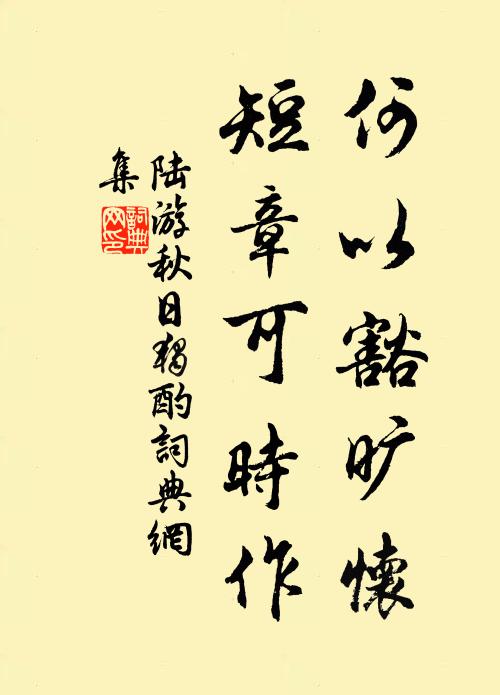 何以豁旷懷
短章可時作
陆游秋日独酌詞典網
集
詞典
网印